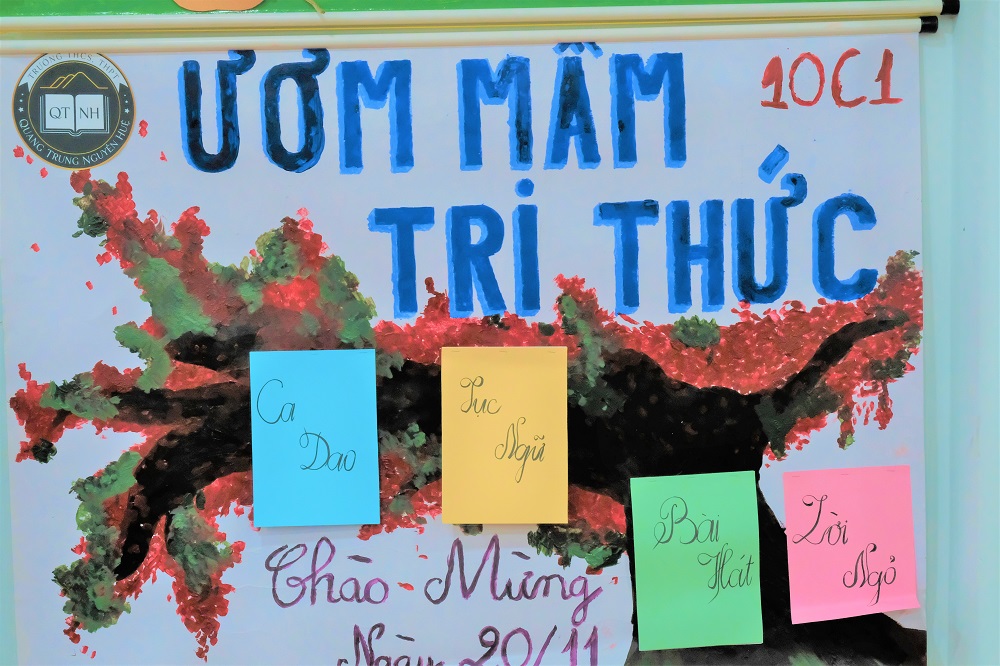 TRƯỜNG THCS, THPT
QT NH
QUANG TRUNG NGUYỄN HUỆ
ƯƠM MẦM
10C1
TRI THỨC
Ca
Dao
Tục
Ngữ
Bài
Hát
Lời
Ngỏ
Chào Mừng
Ngày 20/11